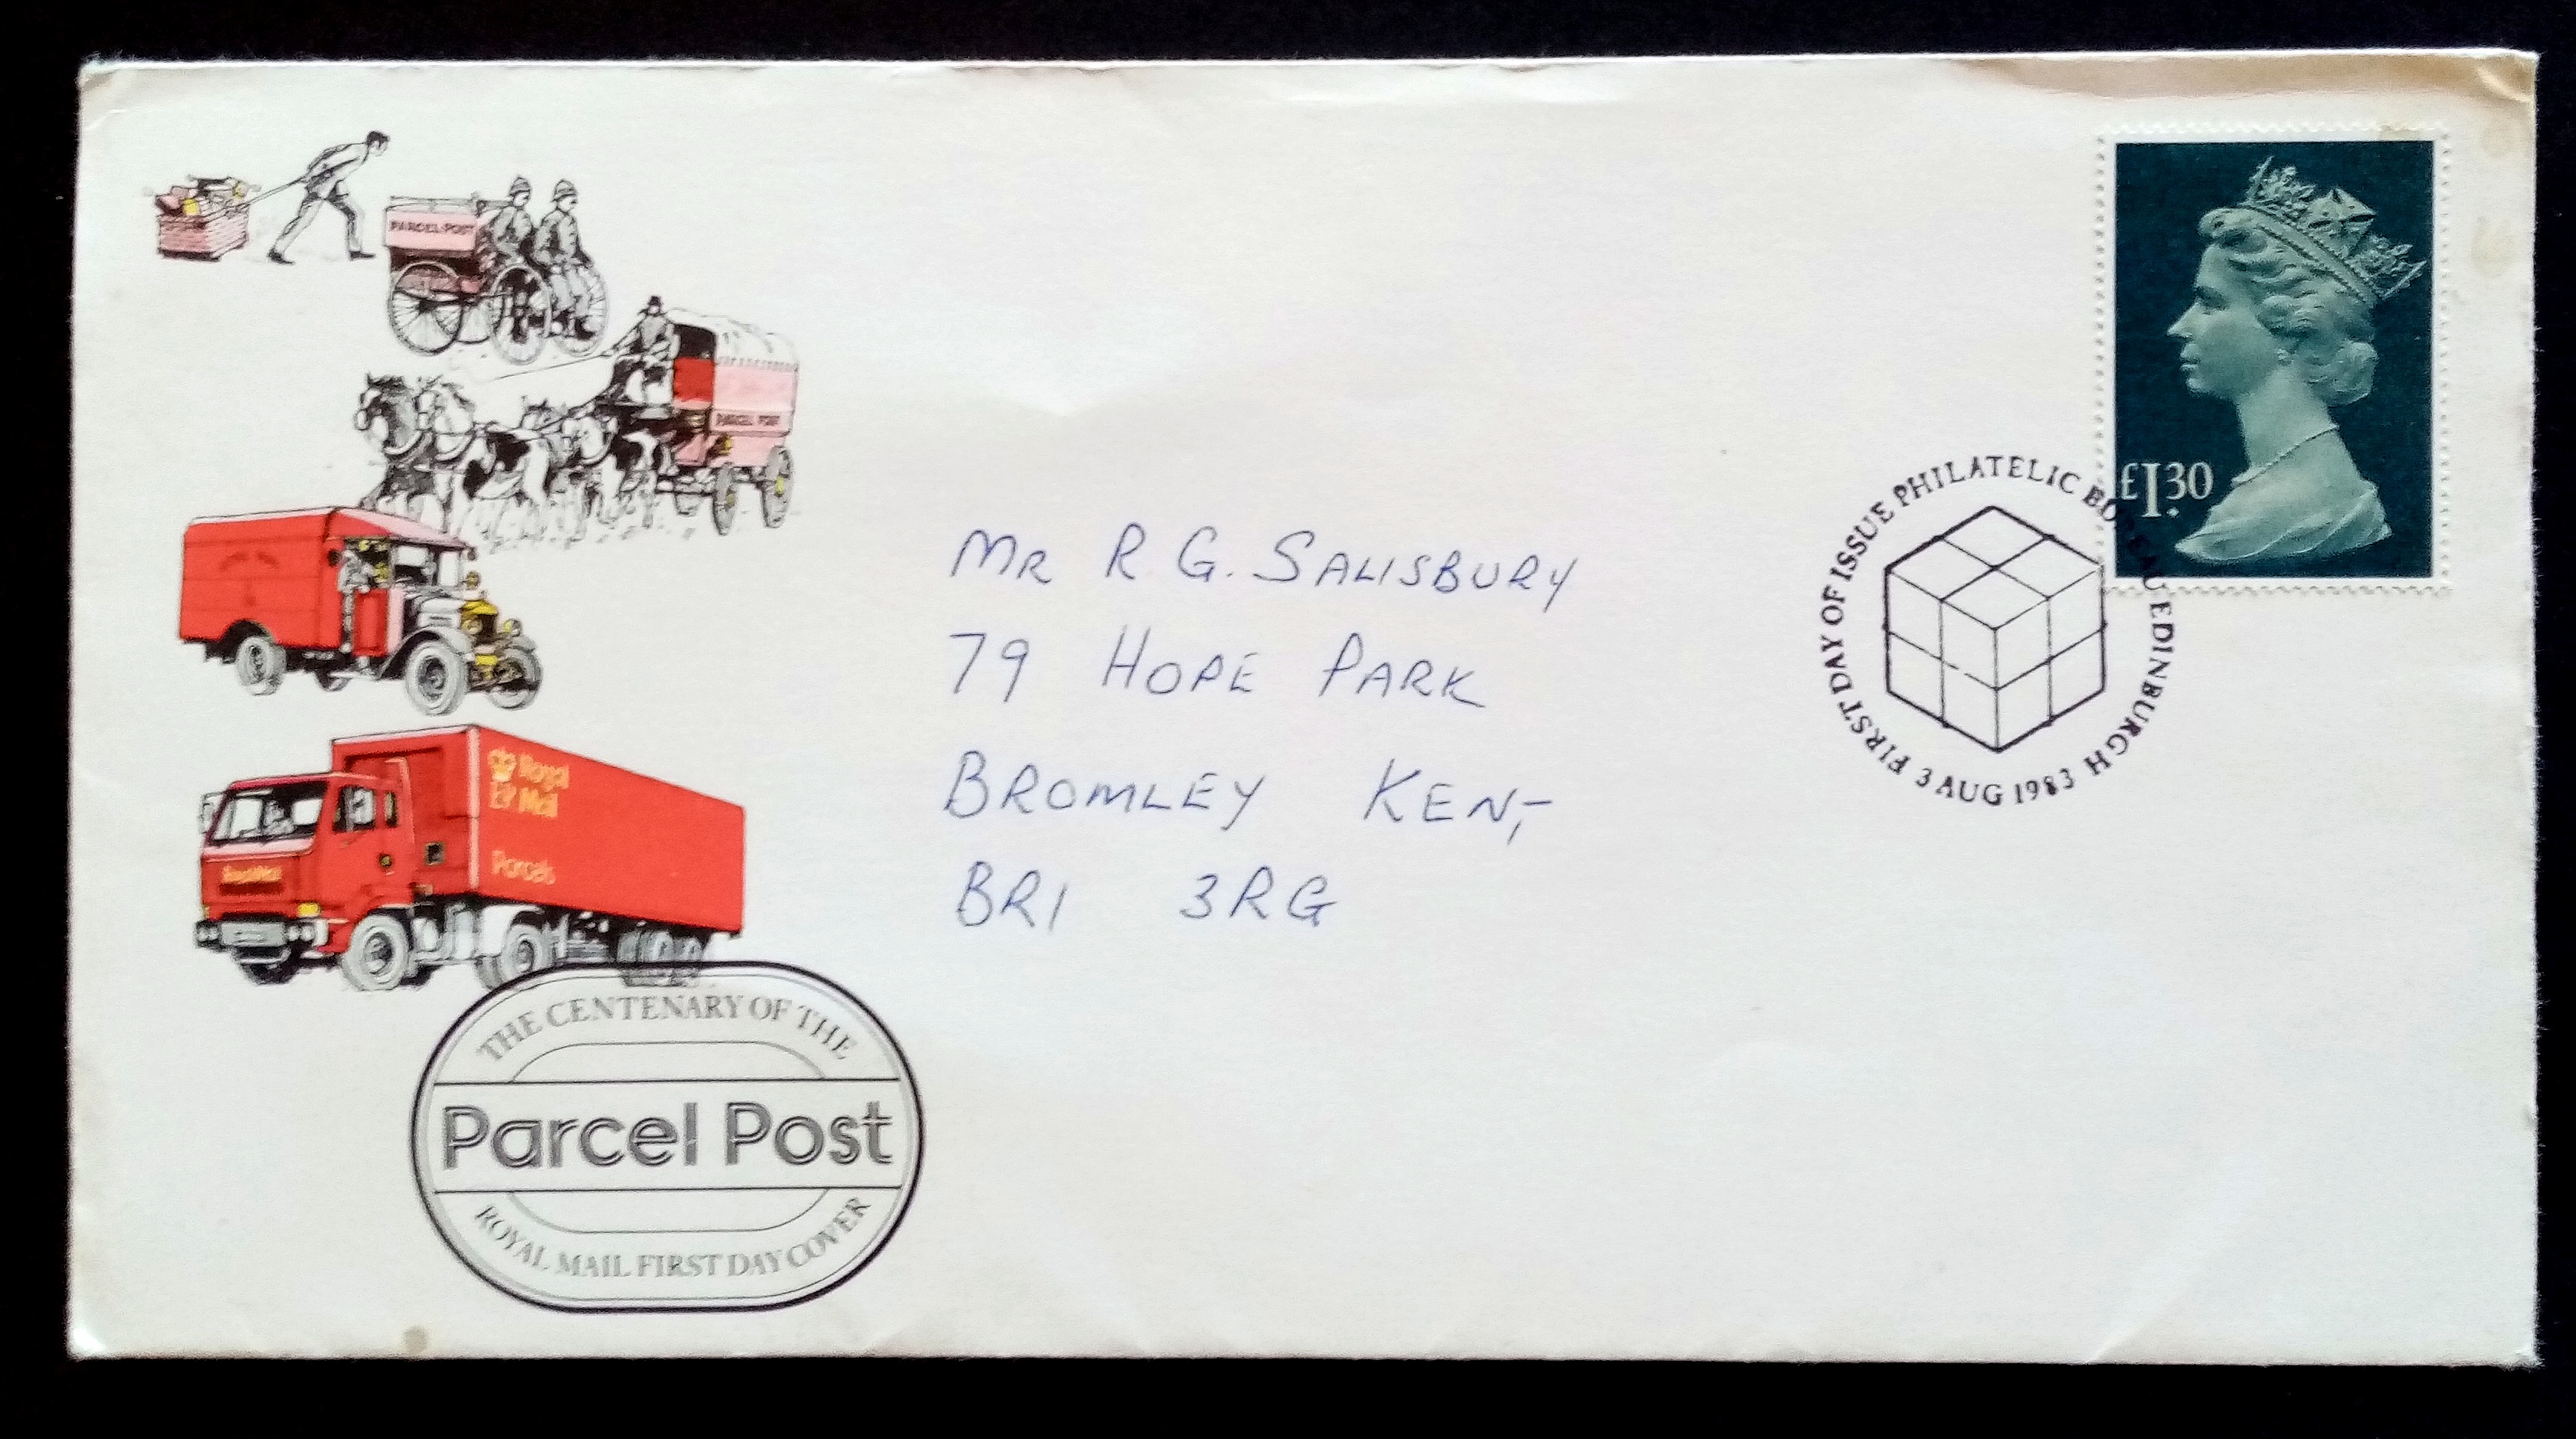 PARCEL POST
PARCEL POST
£1.30
FIRST DAY OF ISSUE PHILATELIC BUREAU EDINBURGH
3 AUG 1983
Mr R. G. SALISBURY
79 HOPE PARK
BROMLEY KENT
BR1 3RG
Royal
EIIR Mail
Parcels
Royal Mail
THE CENTENARY OF THE
Parcel Post
ROYAL MAIL FIRST DAY COVER